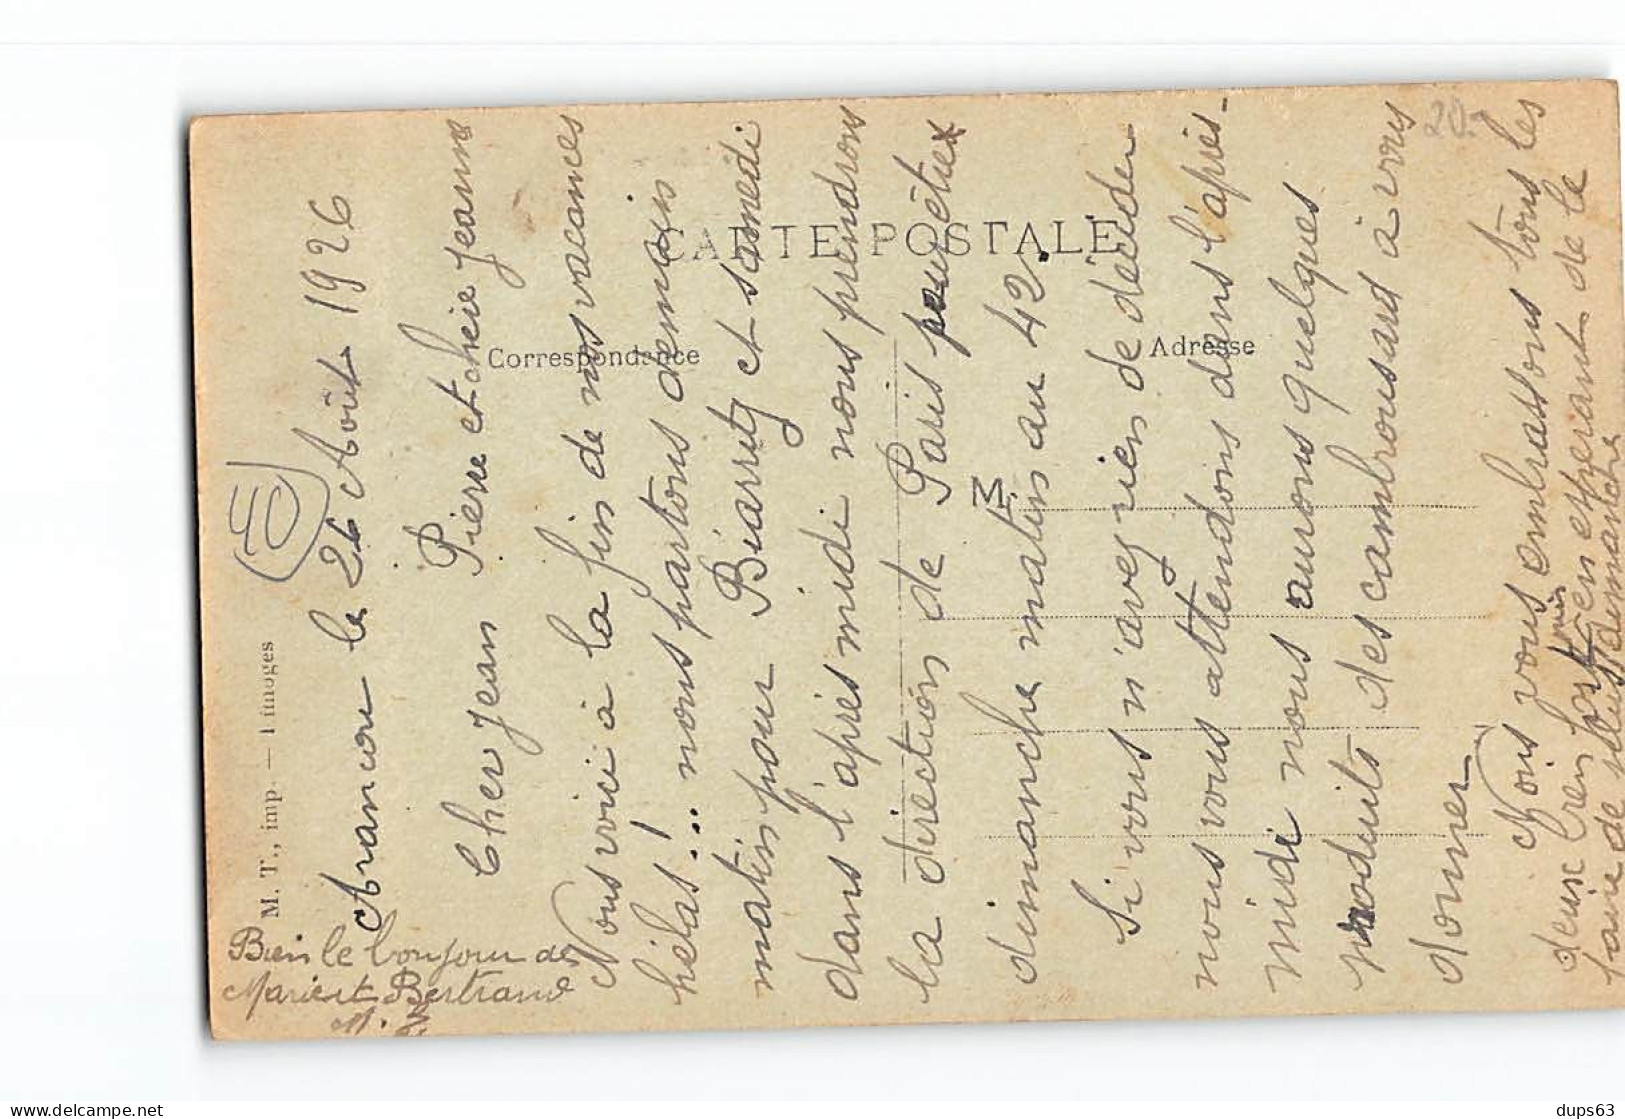 Arancou le 26 Août 1926
Cher Jean Pierre et chère Jeanne
Nous voici à la fin de nos vacances
hélas!... nous partons demain
matin pour Biarritz et samedi
dans l'après midi nous prendrons
la direction de Paris pour être
dimanche matin au 42.
Si vous n'avez rien de décider
nous vous attendons dans l'après-
midi nous aurons quelques
produits des cambroussard à vous
donner
Nous vous embrassons tous les
deux bien fort en espérant de le
faire de plus dimanche
Bien le bonjour de
Marie et Bertrand
CARTE POSTALE
Correspondance
Adresse
M.
M. T., imp. — Limoges
20.-
dups63